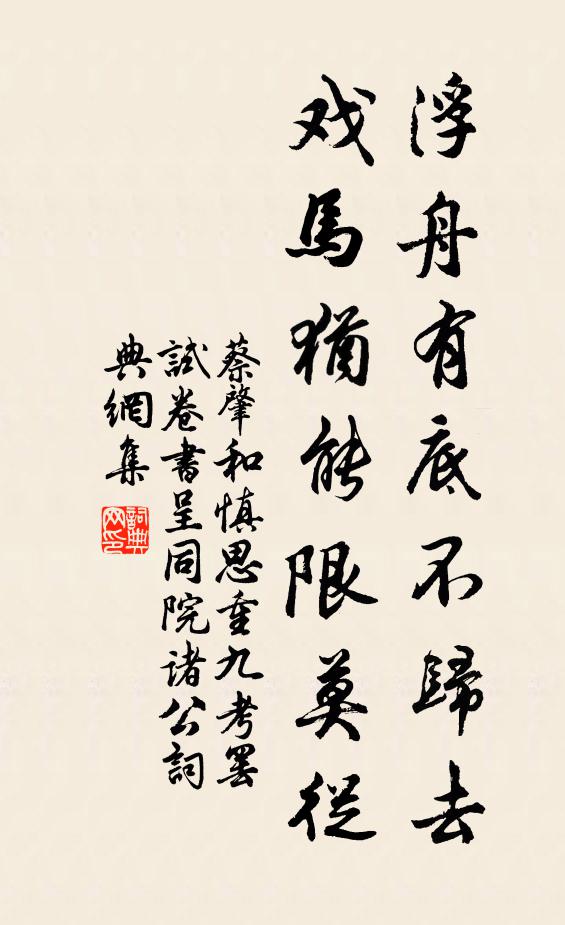 浮舟有底不歸去
戏馬猶能限莫從
蔡肇和慎思重九考罢
試卷書呈同院诸公詞
典網集
詞典
网印